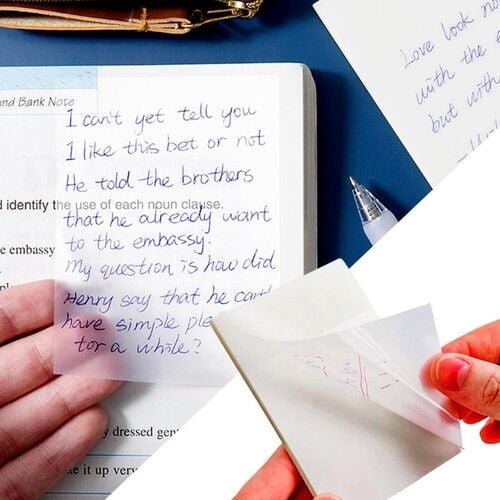 nd Bank Note
I can't yet tell you
I like this bet or not
He told the brothers
d identify the use of each noun clause.
that he already want
e embassy
to the embassy.
My question is how did
Henry say that he can't
have simple ple
for a while?
y dressed gen
e it up very
Love look no
with the e
but with